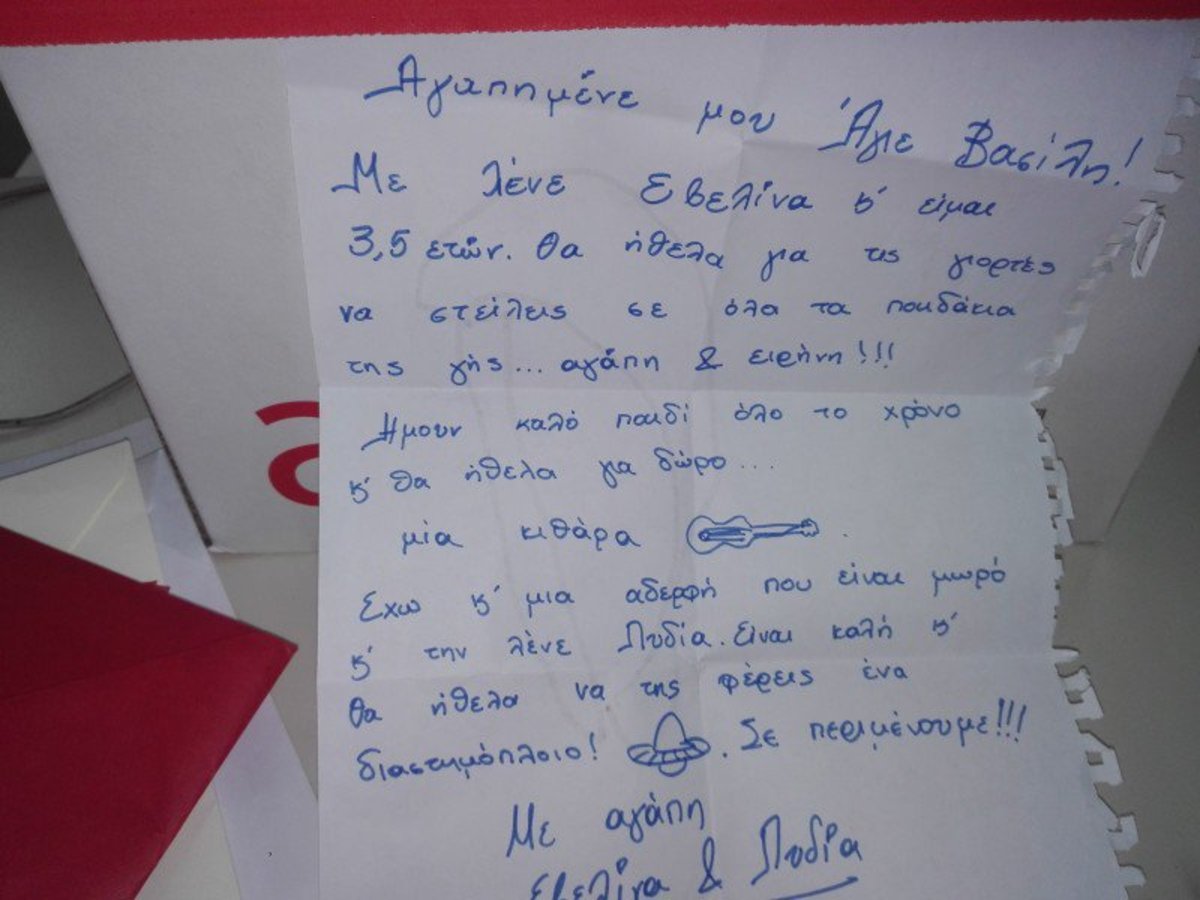 Αγαπημένε μου Άγιε Βασίλη!
Με λένε Εβελίνα κ' είμαι
3,5 ετών. Θα ήθελα για τις γιορτές
να στείλεις σε όλα τα παιδάκια
της γής... αγάπη & ειρήνη!!!
Ήμουν καλό παιδί όλο το χρόνο
κ' θα ήθελα για δώρο...
μία κιθάρα .
Εχω κ' μια αδερφή που είναι μωρό
κ' την λένε Λυδία. Είναι καλή κ'
θα ήθελα να της φέρεις ένα
διαστημόπλοιο! . Σε περιμένουμε!!!
Με αγάπη
Εβελίνα & Λυδία
a